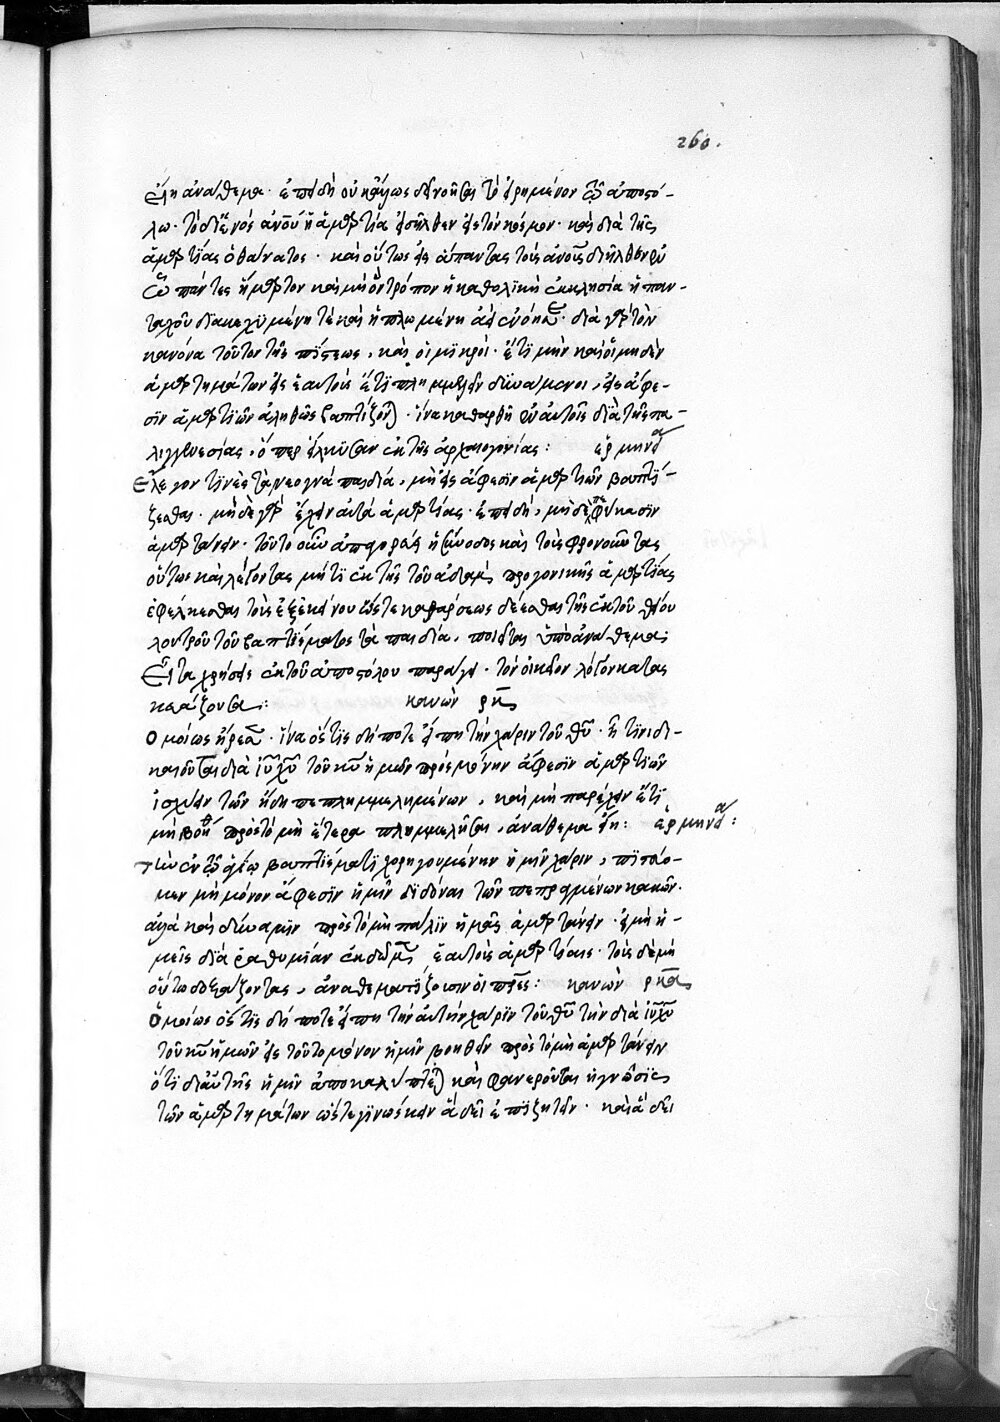 260.
εἴη ἀνάθεμα· ἐπειδὴ οὐκ ἄλλως δεῖ νοῆσαι τὸ εἰρημένον τῷ ἀποστό-
λω· τὸ δι' ἑνὸς ἀν̅ου ἡ ἁμαρτία εἰσῆλθεν εἰς τὸν κόσμον· καὶ διὰ τῆς
ἁμαρτίας ὁ θάνατος· καὶ οὕτως εἰς ἅπαντας τοὺς ἀν̅ους διῆλθεν ἐν
ᾧ πάντες ἥμαρτον καὶ μὴ ὃν τρόπον ἡ καθολικὴ ἐκκλησία ἡ παν-
ταχοῦ διακεχυμένη τὲ καὶ ἡπλωμένη ἀεὶ ἐνόησε· διὰ γὰρ τὸν
κανόνα τοῦτον τῆς πίστεως, καὶ οἱ μικροὶ· ἔτι μὴν καὶ οἱ μηδὲν
ἁμαρτημάτων εἰς ἑαυτοὺς ἔτι πλημμελεῖν δυνάμενοι, εἰς ἄφε-
σιν ἁμαρτιῶν ἀληθῶς βαπτίζονται· ἵνα καθαρθῇ ἐν αὐτοῖς διὰ τῆς πα-
λιγγενεσίας, ὅπερ εἵλκυσαν ἐκ τῆς ἀρχαιογονίας: ἑρμηνεία
Ἔλεγον τινὲς τὰ νεογνὰ παιδία, μὴ εἰς ἄφεσιν ἁμαρτιῶν βαπτί-
ζεσθαι· μὴ δὲ γὰρ ἕλκειν αὐτὰ ἁμαρτίας· ἐπειδὴ, μὴ δὲ πεφύκασιν
ἁμαρτάνειν· τοῦτο οὖν ἀπηγόρευσεν ἡ σύνοδος καὶ τοὺς φρονοῦντας
οὕτως καὶ λέγοντας μήτι ἐκ τῆς τοῦ ἀδαμ, προγονικῆς ἁμαρτίας
ἐφέλκεσθαι τοὺς ἐξ ἐκείνου ὥστε καθαρσεως δέεσθαι τῆς ἐκ τοῦ θείου
λουτροῦ τοῦ βαπτίσματος τὰ παιδία, ποιεῖται ὑπὸ ἀνάθεμα:
Εἶτα χρήσεις ἐκ τοῦ ἀποστόλου παράγει· τὸν οἰκεῖον λόγον κατας
κευάζουσα: κανὼν ρκ̅
Ομοίως ἤρεσεν· ἵνα ὅς τις δή ποτε εἴπη τὴν χάριν τοῦ θ̅υ· ᾗ τινι δι-
καιοῦται διὰ ι̅υ χ̅υ τοῦ κ̅υ ἡμῶν πρὸς μόνην ἄφεσιν ἁμαρτιῶν
ἰσχύειν τῶν ἤδη πεπλημμελημένων, καὶ μὴ παρέχειν ἔτι
μὴν βοήθειαν πρὸς τὸ μὴ ἕτερα πλημμελῆσαι, ἀνάθεμα εἴη: ἑρμηνεία:
τὴν ἐν τῷ ἁγίω βαπτίσματι χορηγουμένην ἡμῖν χάριν, πιστεύο-
μεν μὴ μόνον ἄφεσιν ἡμῖν διδόναι τῶν πεπραγμένων κακῶν·
ἀλλὰ καὶ δύναμιν πρὸς τὸ μὴ πάλιν ἡμᾶς ἁμαρτάνειν· εἰ μὴ ἡ-
μεῖς διὰ ῥαθυμίαν ἐκδῶμεν ἑαυτοὺς ἁμαρτίαις· τοὺς δὲ μὴ
οὕτω δοξάζοντας, ἀναθεματίζουσιν οἱ π̅ρες: κανὼν ρκα̅
Ὁμοίως ὅς τις δή ποτε εἴπη τὴν αὐτὴν χάριν τοῦ θ̅υ τὴν διὰ ι̅υ χ̅υ
τοῦ κ̅υ ἡμῶν εἰς τοῦτο μόνον ἡμῖν βοηθεῖν πρὸς τὸ μὴ ἁμαρτάνειν
ὅτι δι' αὐτῆς ἡμῖν ἀποκαλύπτεται καὶ φανεροῦται ἡ γνῶσις
τῶν ἁμαρτημάτων ὥστε γινώσκειν ἃ δεῖ ἐπιζητεῖν· καὶ ἃ δεῖ